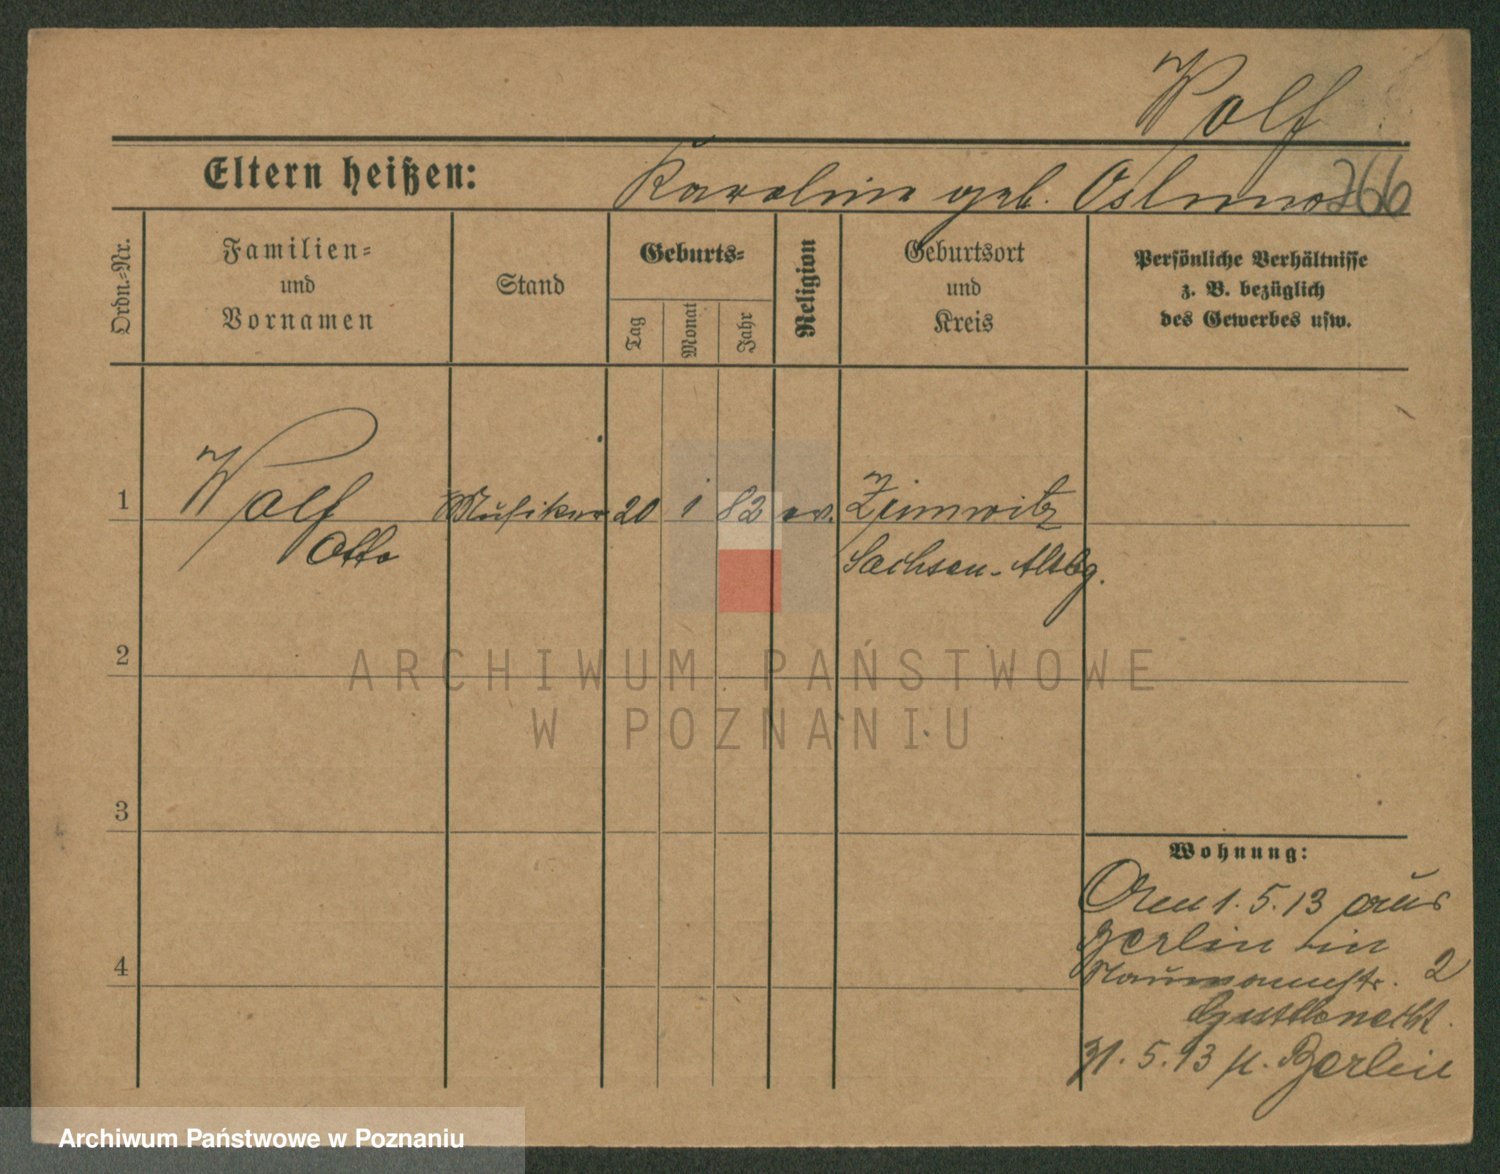 Wolf
Eltern heißen: Karoline geb. 766
Ordn.-Nr.
Familien-
und
Vornamen
Stand
Geburts-
Tag
Monat
Jahr
Religion
Geburtsort
und
Kreis
Persönliche Verhältnisse
z. B. bezüglich
des Gewerbes usw.
1 Wolf Musiker 20 1 82 ev.
Otto Sachsen-Altbg.
2
ARCHIWUM PAŃSTWOWE
W POZNANIU
3
Wohnung:
1.5.13 aus
Berlin in
4 2
Gutknecht.
31.5.13 n. Berlin
Archiwum Państwowe w Poznaniu